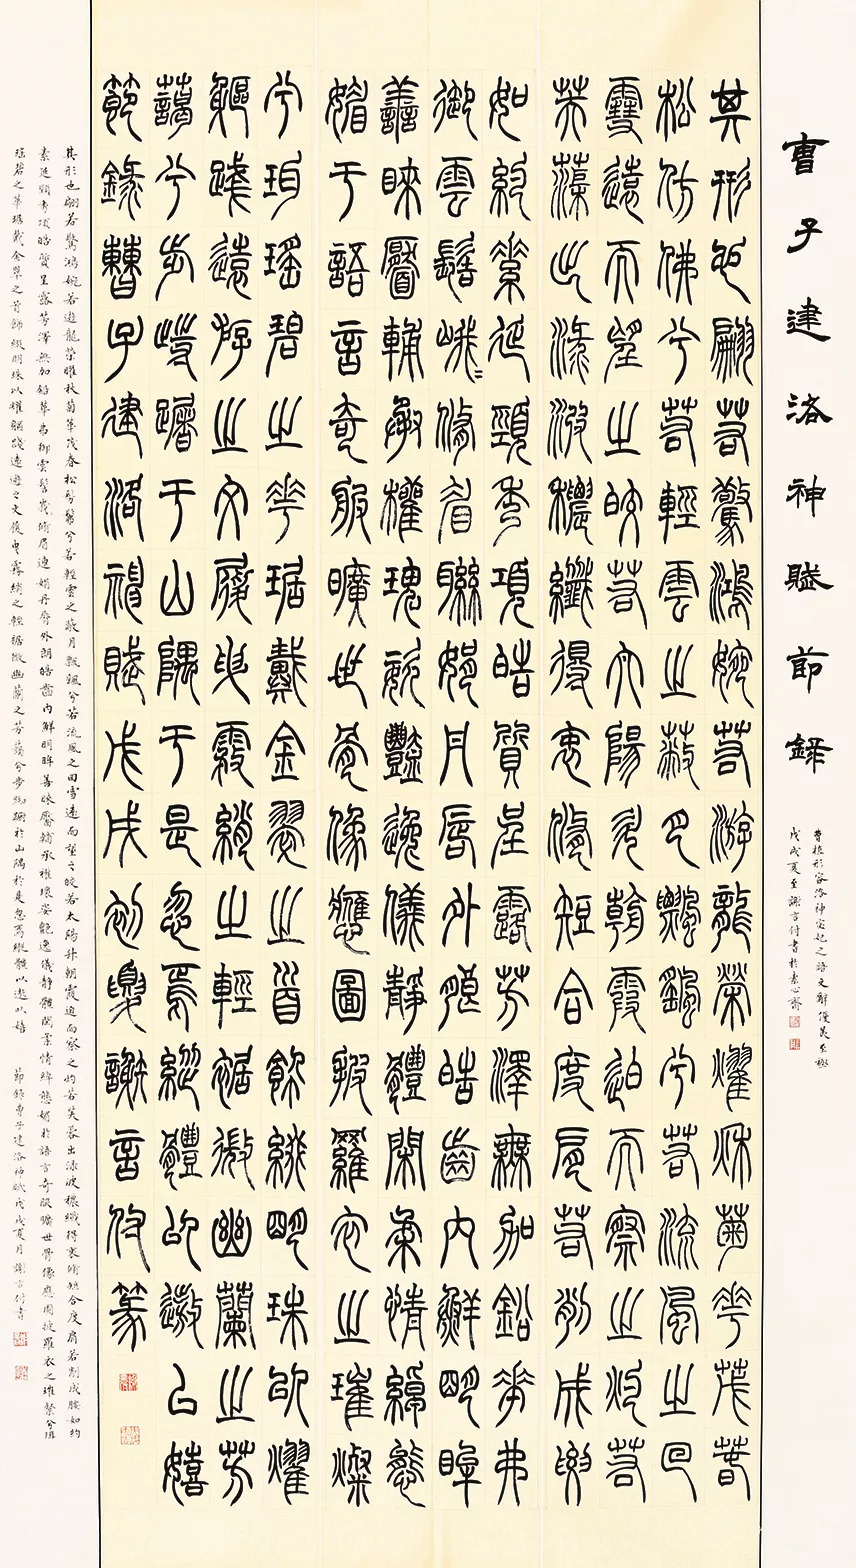 曹子建洛神賦節錄
曹植形容洛神宓妃之語文辭優美至極
戊戌夏至謝言付書於素心齋
其形也翩若驚鴻婉若游龍榮燿秋菊華茂春
松仿佛兮若輕雲之蔽月飄颻兮若流風之回
雪遠而望之皎若太陽升朝霞迫而察之灼若
芙蕖出淥波穠纖得衷修短合度肩若削成要
如約素延頸秀項皓質呈露芳澤無加鉛華弗
御雲髻峨=修眉聯娟丹唇外朗皓齒內鮮明眸
善睞靨輔承權瑰姿豔逸儀靜體閑柔情綽態
媚于語言奇服曠世骨像應圖披羅衣之璀燦
兮珥瑤碧之華琚戴金翠之首飾綴明珠以燿
軀踐遠游之文履曳霧綃之輕裾微幽蘭之芳
藹兮步踟躕于山隅于是忽焉縱體以遨以嬉
節錄曹子建洛神賦戊戌初夏謝言付篆
其形也翩若驚鴻婉若遊龍榮曜秋菊華茂春松髣髴兮若輕雲之蔽月飄颻兮若流風之回雪遠而望之皎若太陽升朝霞迫而察之灼若芙蓉出淥波穠纖得衷脩短合度肩若削成腰如約
素延頸秀項皓質呈露芳澤無加鉛華弗御雲髻峩脩眉連娟丹唇外朗皓齒內鮮明眸善睞靨輔承權瓌姿豔逸儀靜體閑柔情綽態媚於語言奇服曠世骨像應圖披羅衣之璀粲兮珥
瑤碧之華琚戴金翠之首飾綴明珠以耀軀踐遠遊之文履曳霧綃之輕裾微幽蘭之芳藹兮步踟躕於山隅於是忽焉縱體以遨以嬉 節錄曹子建洛神賦戊戌夏月謝言付書